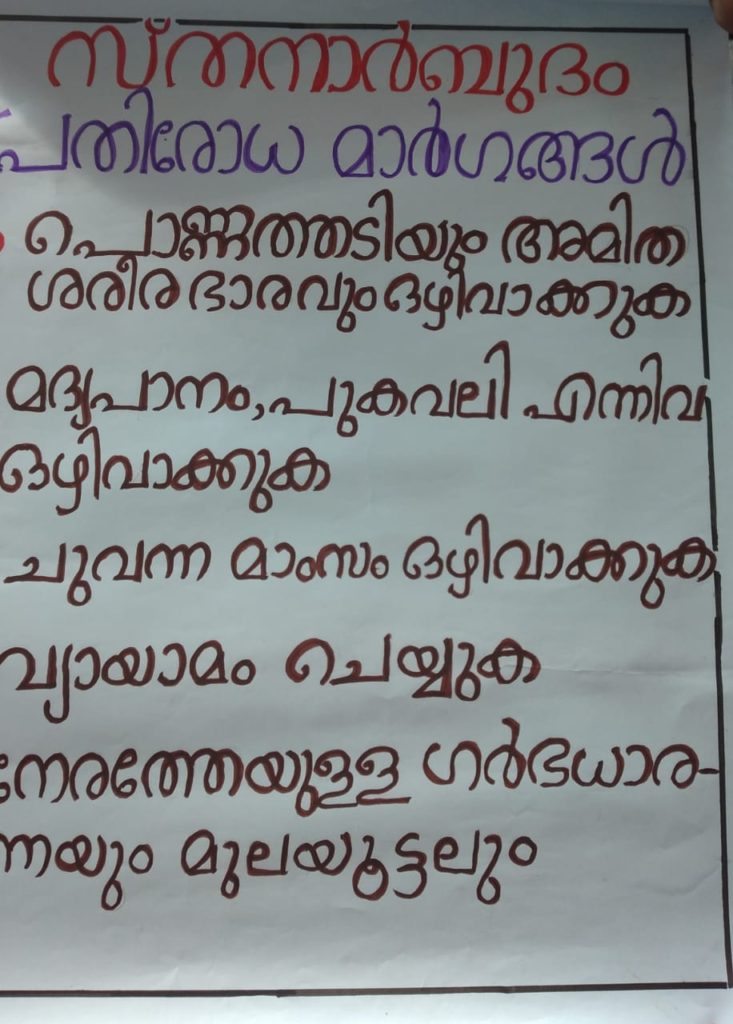 സ്തനാർബുദം
പ്രതിരോധ മാർഗങ്ങൾ
പൊണ്ണത്തടിയും അമിത
ശരീര ഭാരവും ഒഴിവാക്കുക
മദ്യപാനം, പുകവലി എന്നിവ
ഒഴിവാക്കുക
ചുവന്ന മാംസം ഒഴിവാക്കുക
വ്യായാമം ചെയ്യുക
നേരത്തേയുള്ള ഗർഭധാര-
ണയും മുലയൂട്ടലും